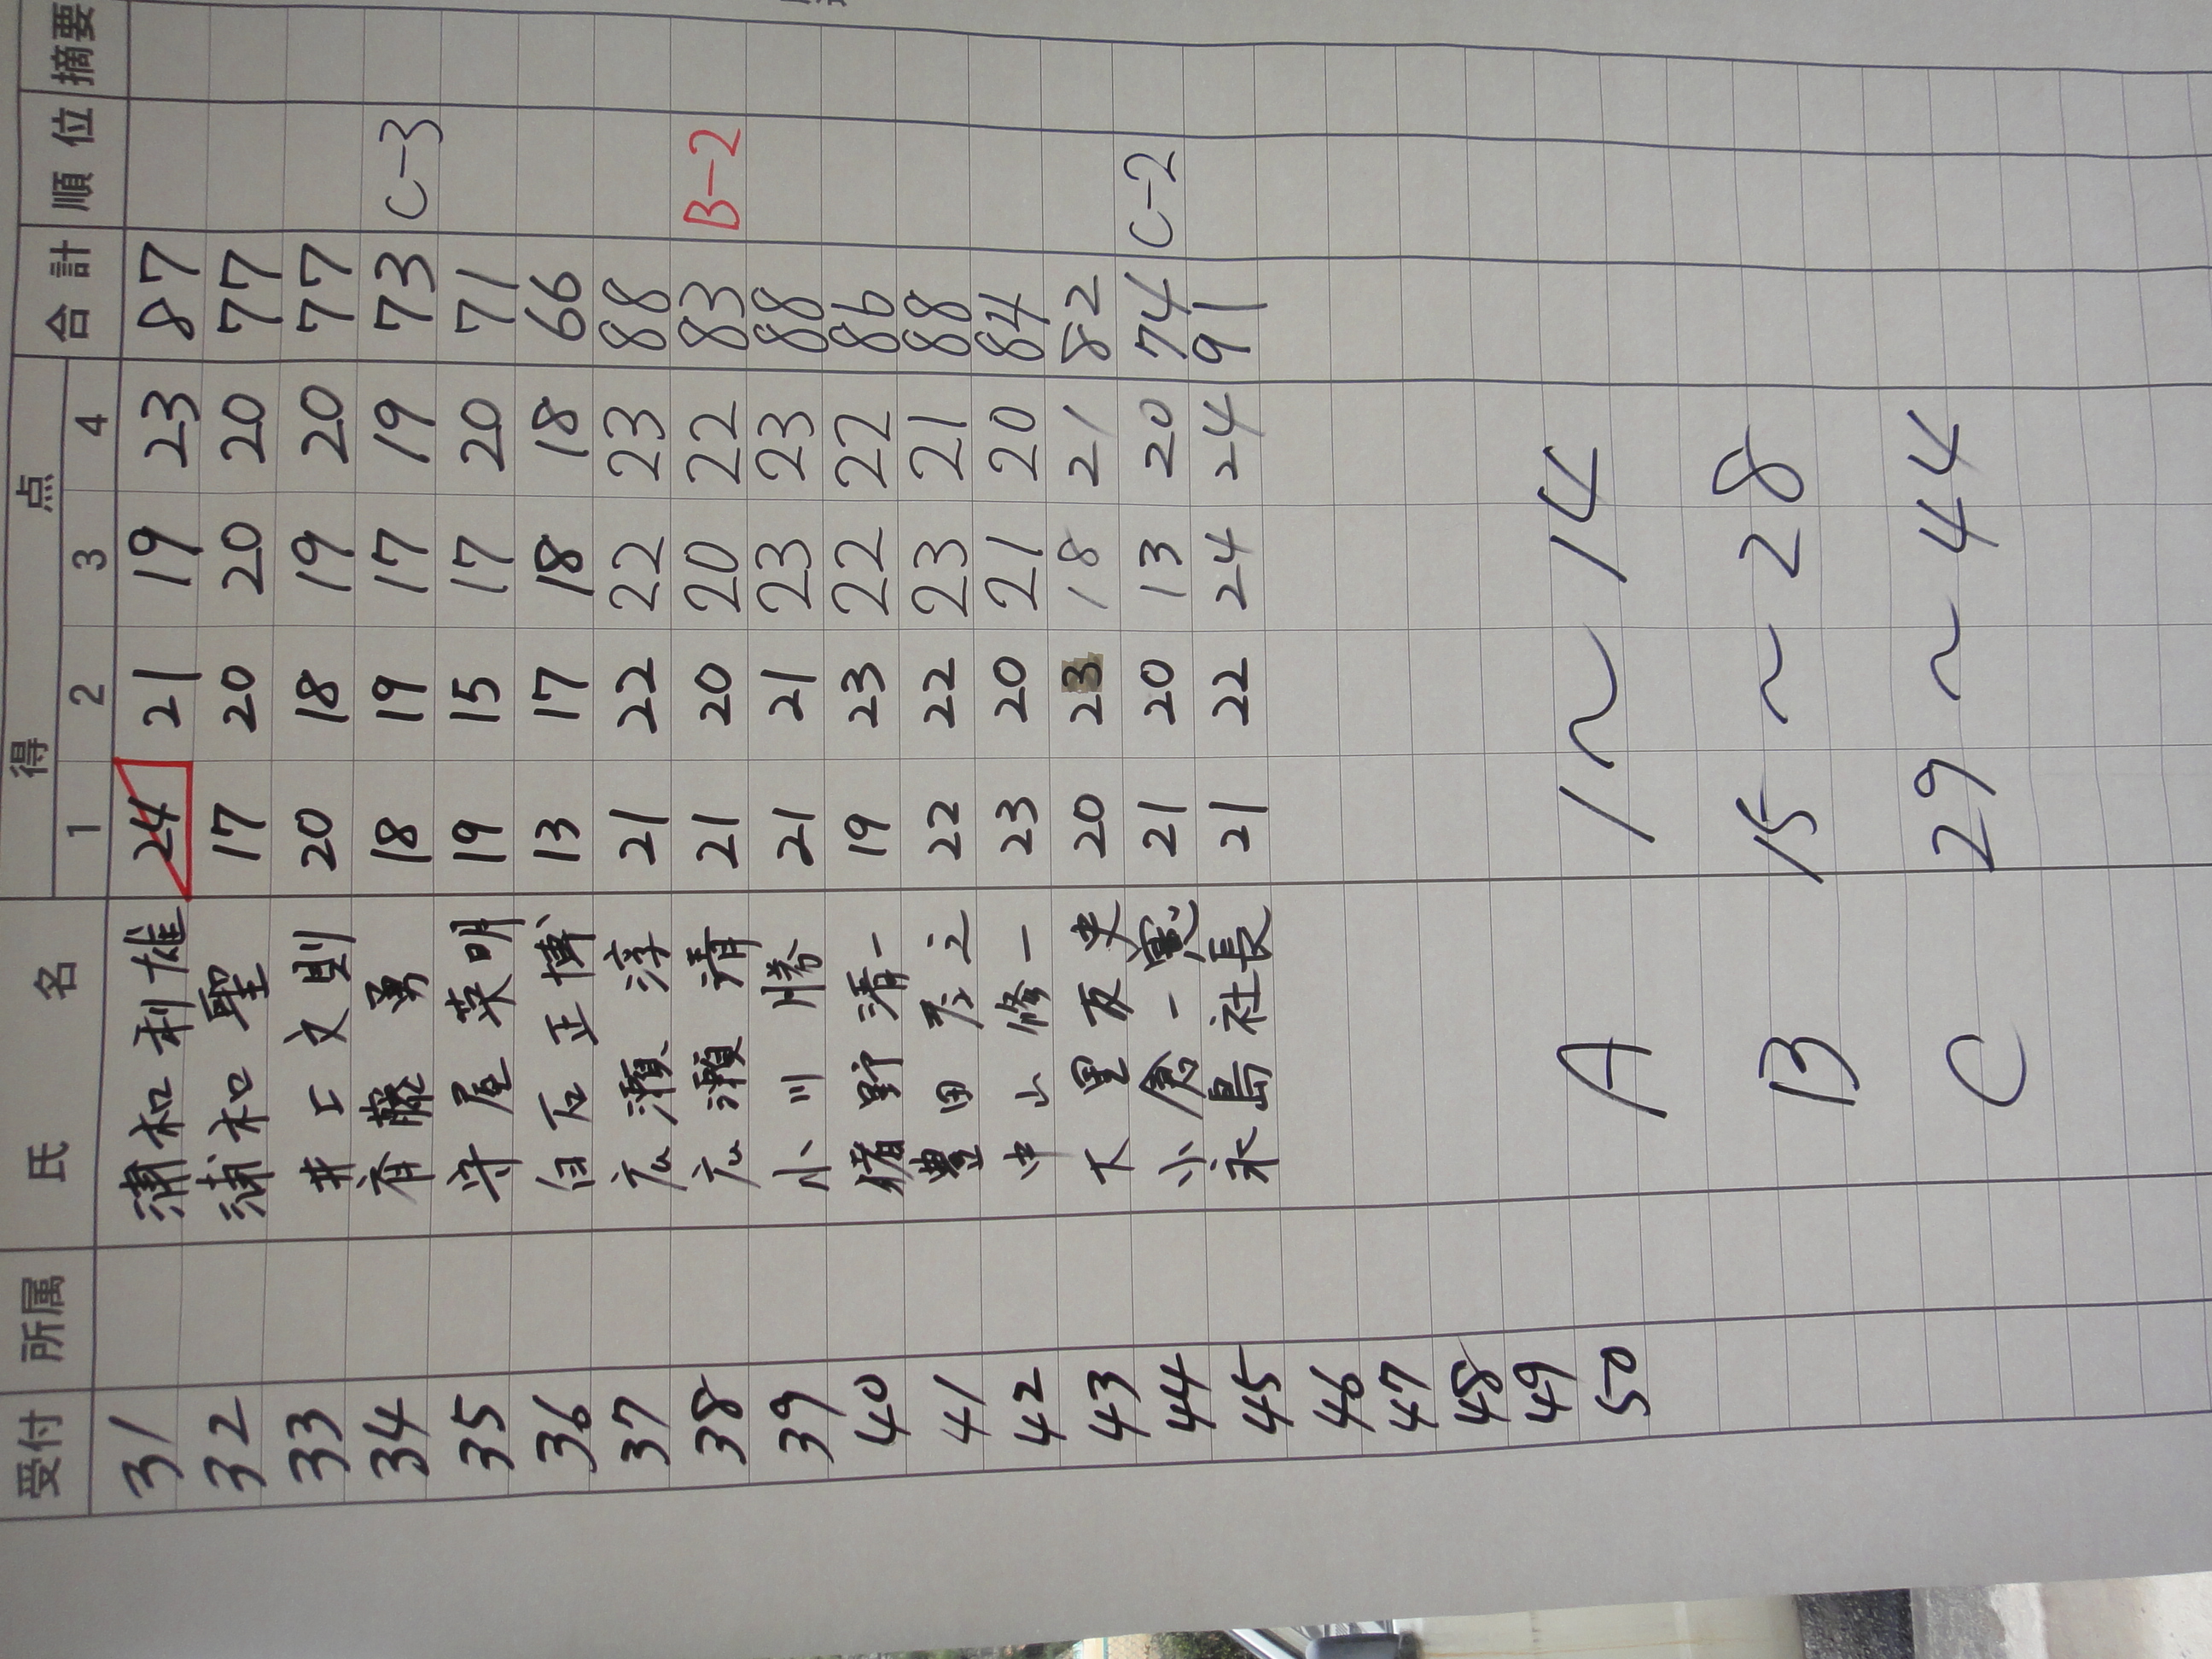 受付 所属 氏名 得点 合計 順位 摘要
1 2 3 4
31 浦和利雄 24 21 19 23 87
32 浦和聖 17 20 20 20 77
33 井上文則 20 18 19 20 77
34 斉藤勇 18 19 17 19 73 C-3
35 守屋菜明 19 15 17 20 71
36 白石正博 13 17 18 18 66
37 広瀬淳 21 22 22 23 88
38 広瀬清 21 20 20 22 83 B-2
39 小川勝 21 21 23 23 88
40 猪野清一 19 23 22 22 86
41 豊田 之 22 22 23 21 88
42 中山修一 23 20 21 20 84
43 大里友史 20 23 18 21 82
44 小倉一憲 21 20 13 20 74 C-2
45 永島社長 21 22 24 24 91
46
47
48
49
50
A 1～14
B 15～28
C 29～44